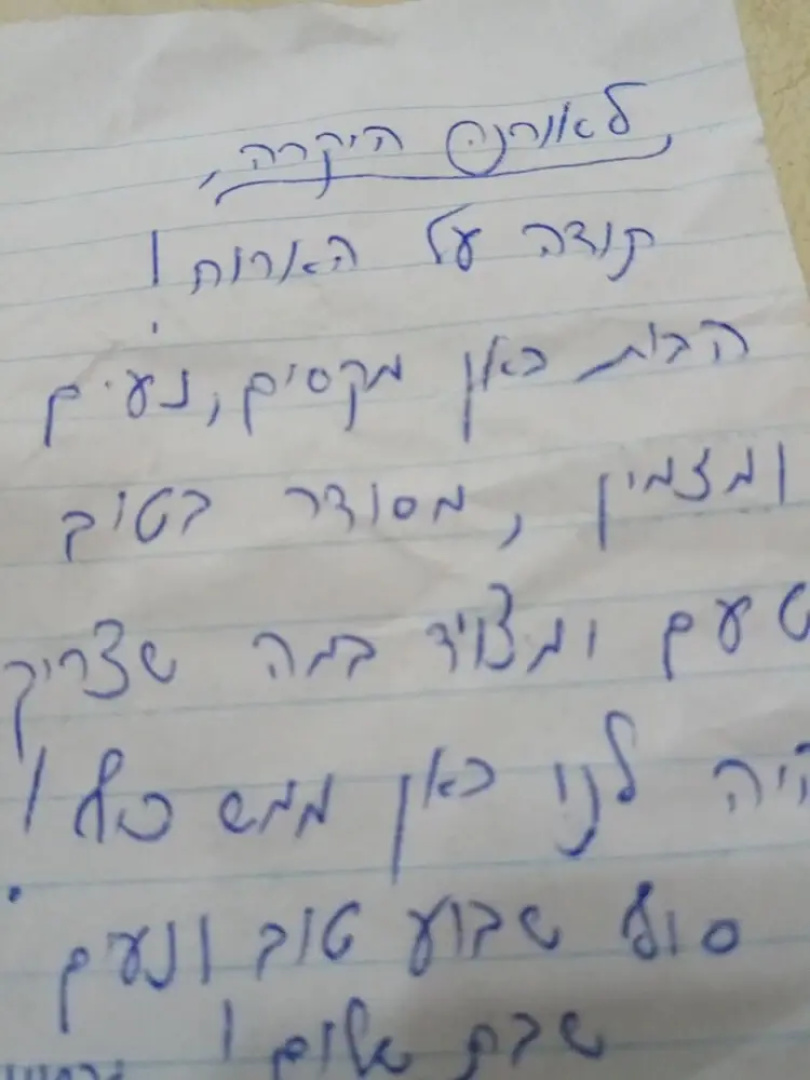 לאורנה היקרה,
תודה על הארוח!
הבית כאן מקסים, נעים
ומזמין, מסודר בטוב
טעם ומצויד במה שצריך
היה לנו כאן ממש כיף!
סוף שבוע טוב ונעים
שבת שלום!